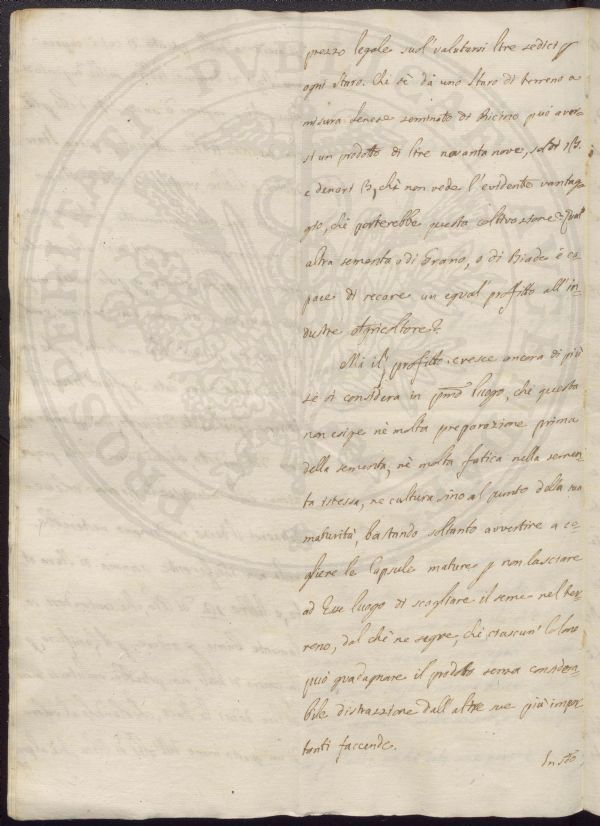 prezzo legale suol valutarsi lire sedici p
ogni staro. Chi sè dà uno staro di terreno a
misura Senese seminato di Ricino può aver-
si un prodotto di lire novanta nove, soldi 13.
e denari 13, chi non vede l'evidente vantag-
gio, chè porterebbe questa coltivazione? Qual'
altra sementa o di Grano, o di Biade è ca-
pace di recare un egual' profitto all'in-
dustre Agricoltore?
Ma il profitto cresce ancora di più
sè si considera in pmo luogo, chè questa
non esige nè molta preparazione prima
della sementa, nè molta fatica nella semen-
ta istessa, ne cultura sino al punto della sua
maturità, bastando soltanto avvertire a co-
gliere le Capsule mature p non lasciare
ad Esse luogo di scagliare il seme nel ter-
reno, dal chè ne segue, chè ciascun' Colono
può guadagnare il prodotto senza considera-
bile distrazione dall'altre sue più impor-
tanti faccende.
In
PROSPERITATI PVBLICAE